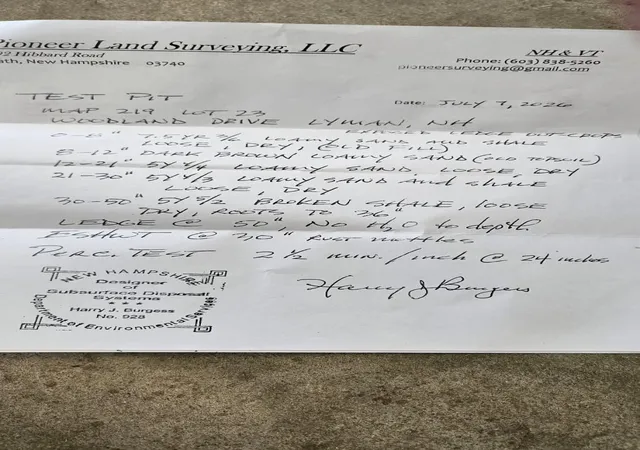 Pioneer Land Surveying, LLC
2 Hibbard Road
ath, New Hampshire 03740
NH & VT
Phone: (603) 838-5260
pioneersurveying@gmail.com
TEST PIT
Date: JULY 7, 2026
MAP 219 LOT 23
WOODLAND DRIVE LYMAN, NH
LEDGE OUTCROPS
0-8" 7.5YR LOAMY SAND AND SHALE
LOOSE, DRY, (OLD FILL)
8-12" DARK BROWN LOAMY SAND (OLD TOPSOIL)
12-21" 5Y LOAMY SAND, LOOSE, DRY
21-30" 5Y 4/3 LOAMY SAND and SHALE
LOOSE, DRY
30-50" 5Y 5/2 BROKEN SHALE, LOOSE
DRY, ROOTS TO 36"
LEDGE @ 50", NO H2O to depth
ESHWT @ RUST mottles
PERC. TEST 2 1/2 min./inch @ 24 inches
NEW HAMPSHIRE
Designer
of
Subsurface Disposal
Systems
* * *
Harry J. Burgess
No. 928
Department of Environmental Services
Harry J Burgess